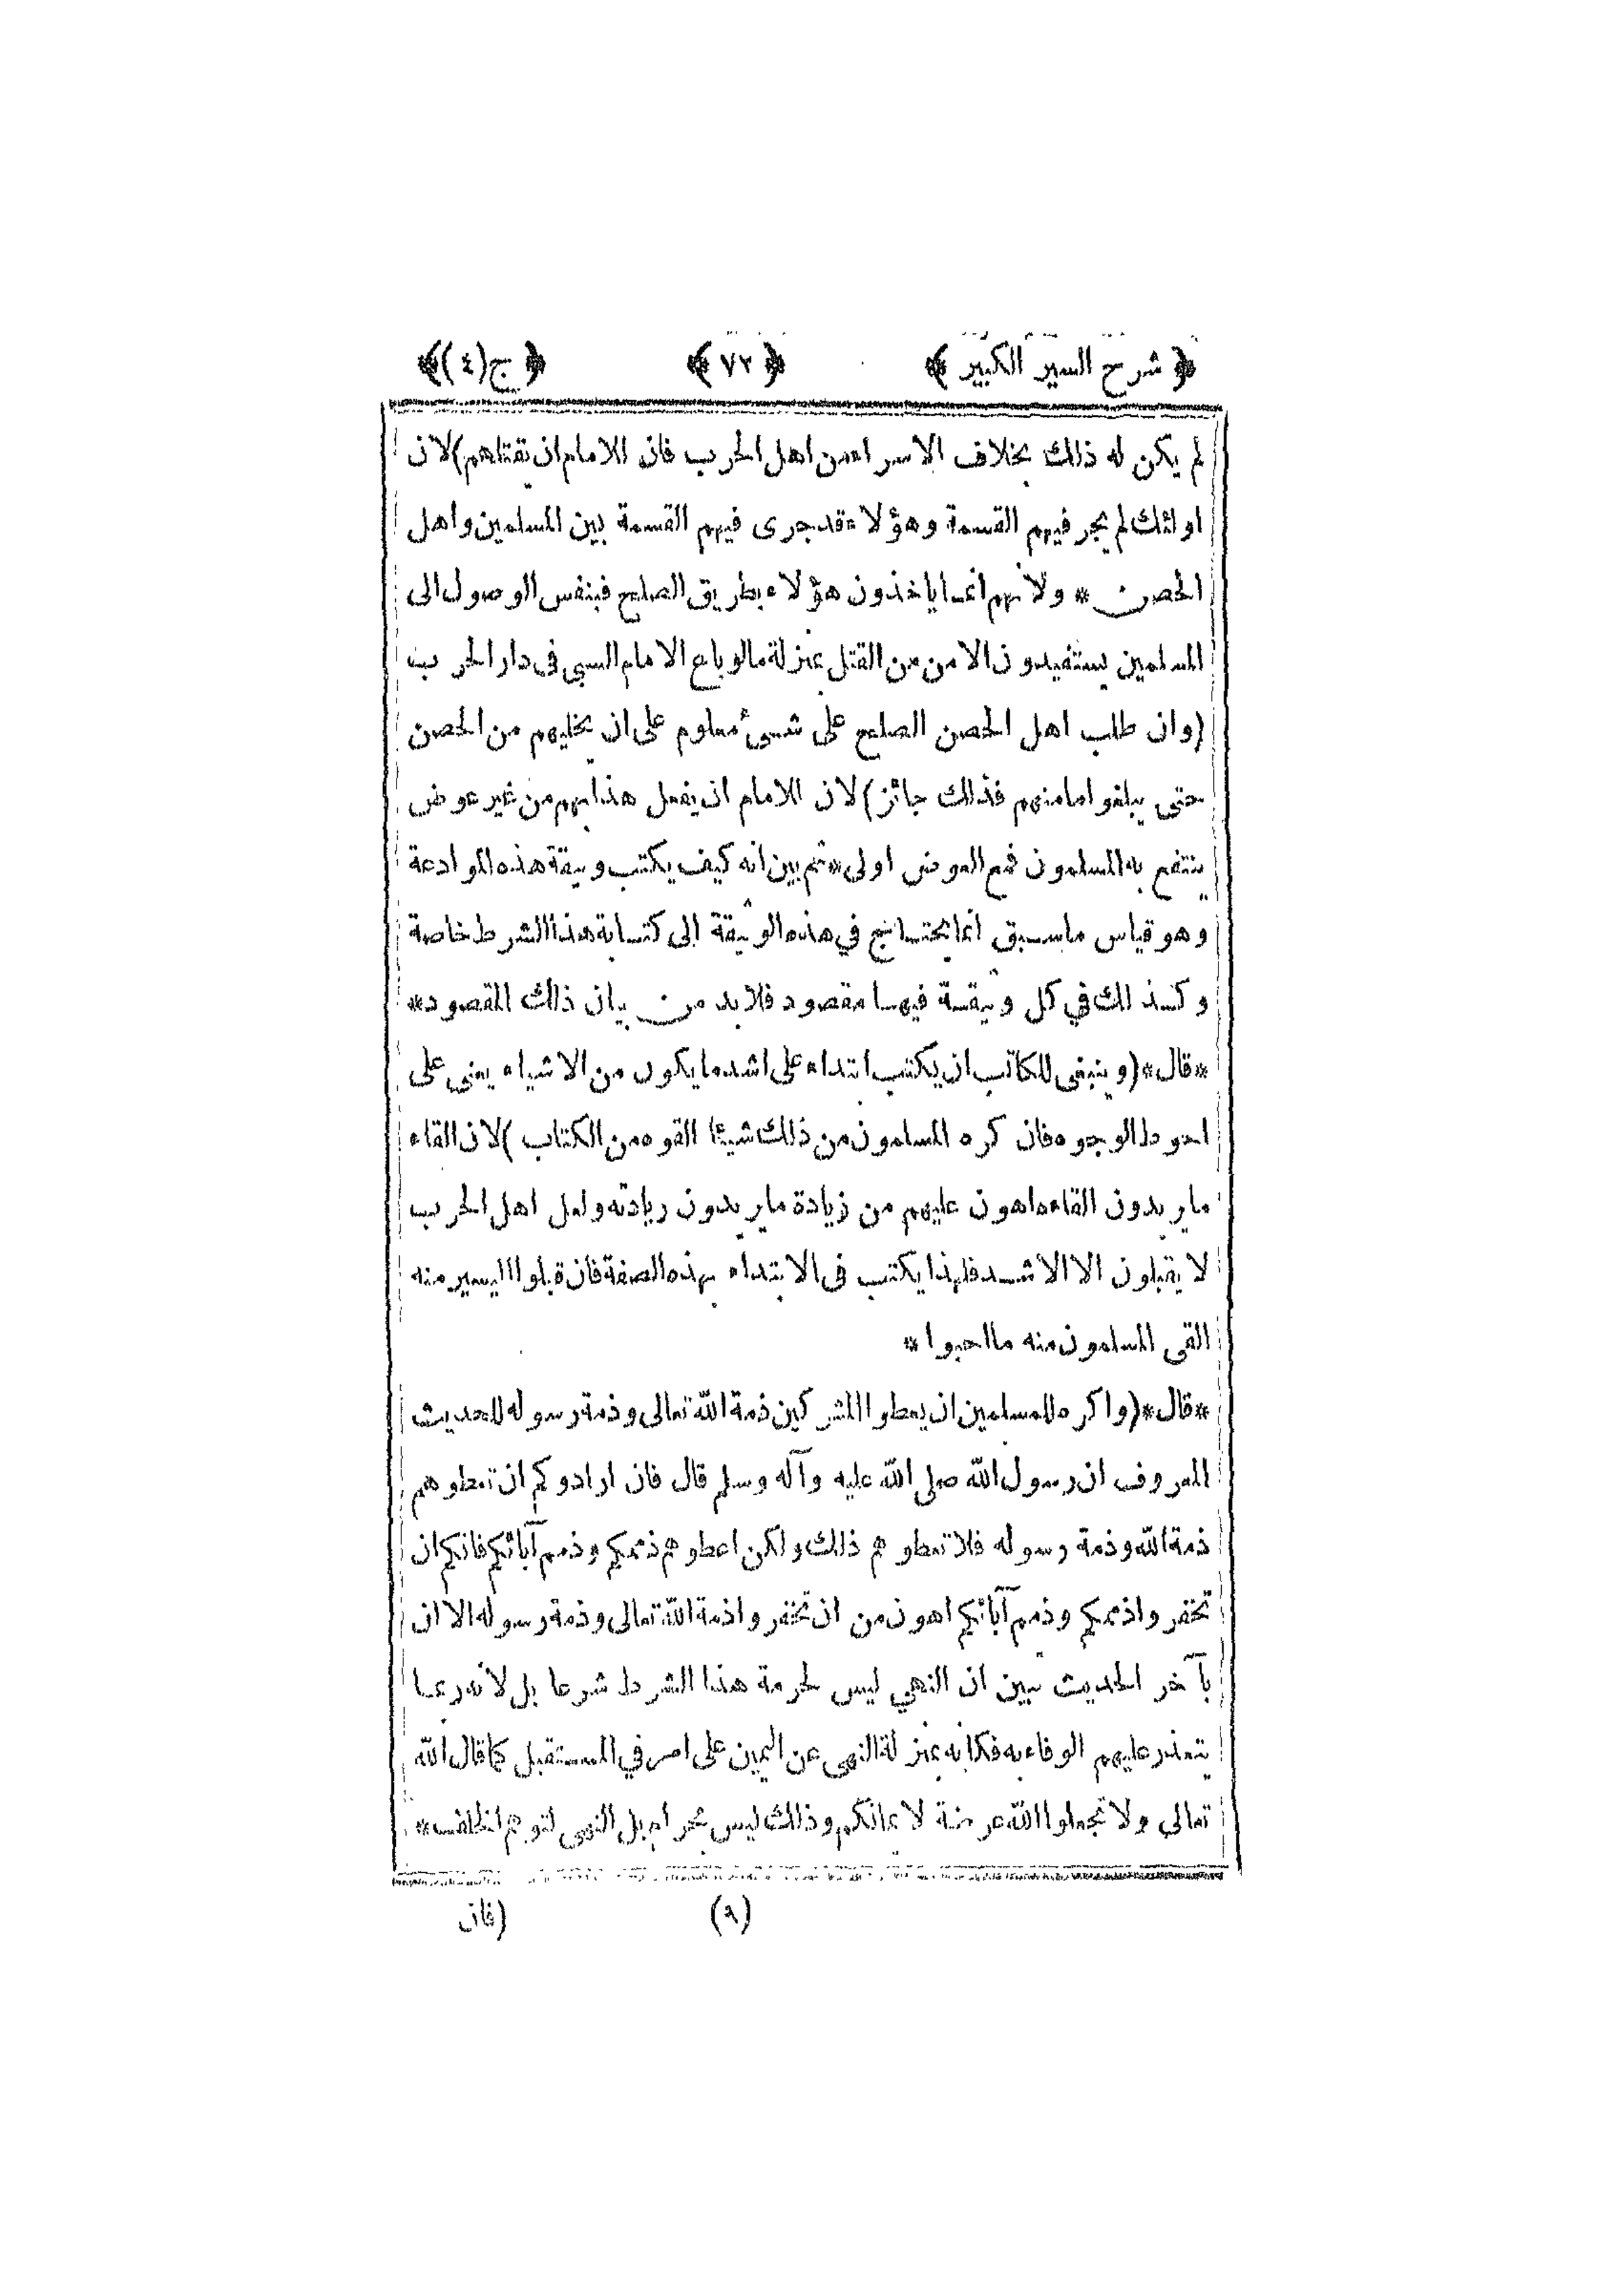 ﴿ شرح السير الكبير ﴾ ﴿ ٧٢ ﴾ ﴿ ج(٤) ﴾
لم يكن له ذلك بخلاف الاسراء من اهل الحرب فان للامام ان يقتلهم) لان
اولئك لم يجر فيهم القسمة وهؤلاء قد جرى فيهم القسمة بين المسلمين واهل
الحصن * ولانهم انما ياخذون هؤلاء بطريق الصلح فبنفس الوصول الى
المسلمين يستفيدون الامن من القتل بمنزلة مالو باع الامام السبى فى دار الحرب
(وان طلب اهل الحصن الصلح على شىء معلوم على ان يخليهم من الحصن
حتى يبلغوا مامنهم فذلك جائز) لان للامام ان يفعل هذا بهم من غير عوض
ينتفع به المسلمون فمع العوض اولى * ثم بين انه كيف يكتب وثيقة هذه الموادعة
وهو قياس ماسبق انما يحتاج في هذه الوثيقة الى كتابة هذا الشرط خاصة
وكذلك في كل وثيقة فيها مقصود فلابد من بيان ذلك المقصود *
* قال * (وينبغى للكاتب ان يكتب ابتداء على اشد ما يكون من الاشياء يعنى على
احوط الوجوه فان كره المسلمون من ذلك شيئا القوه من الكتاب) لان القاء
مايريدون القاءه اهون عليهم من زيادة مايريدون زيادته ولعل اهل الحرب
لا يقبلون الا الاشد فلهذا يكتب فى الابتداء بهذه الصفة فان قبلوا اليسير منه
القى المسلمون منه ما احبوا *
* قال * (واكره للمسلمين ان يعطوا المشركين ذمة الله تعالى وذمة رسوله للحديث
المعروف ان رسول الله صلى الله عليه وآله وسلم قال فان ارادوكم ان تعطوهم
ذمة الله وذمة رسوله فلا تعطوهم ذلك ولكن اعطوهم ذممكم وذمم آبائكم فانكم ان
تخفروا ذممكم وذمم آبائكم اهون من ان تخفروا ذمة الله تعالى وذمة رسوله الا ان
بآخر الحديث تبين ان النهي ليس لحرمة هذا الشرط شرعا بل لانه ربما
يتعذر عليهم الوفاء به فكانه بمنزلة النهى عن اليمين على امر في المستقبل كما قال الله
تعالى ولا تجعلوا الله عرضة لايمانكم وذلك ليس بحرام بل النهى لتوهم الخلف *
(٩) (فان